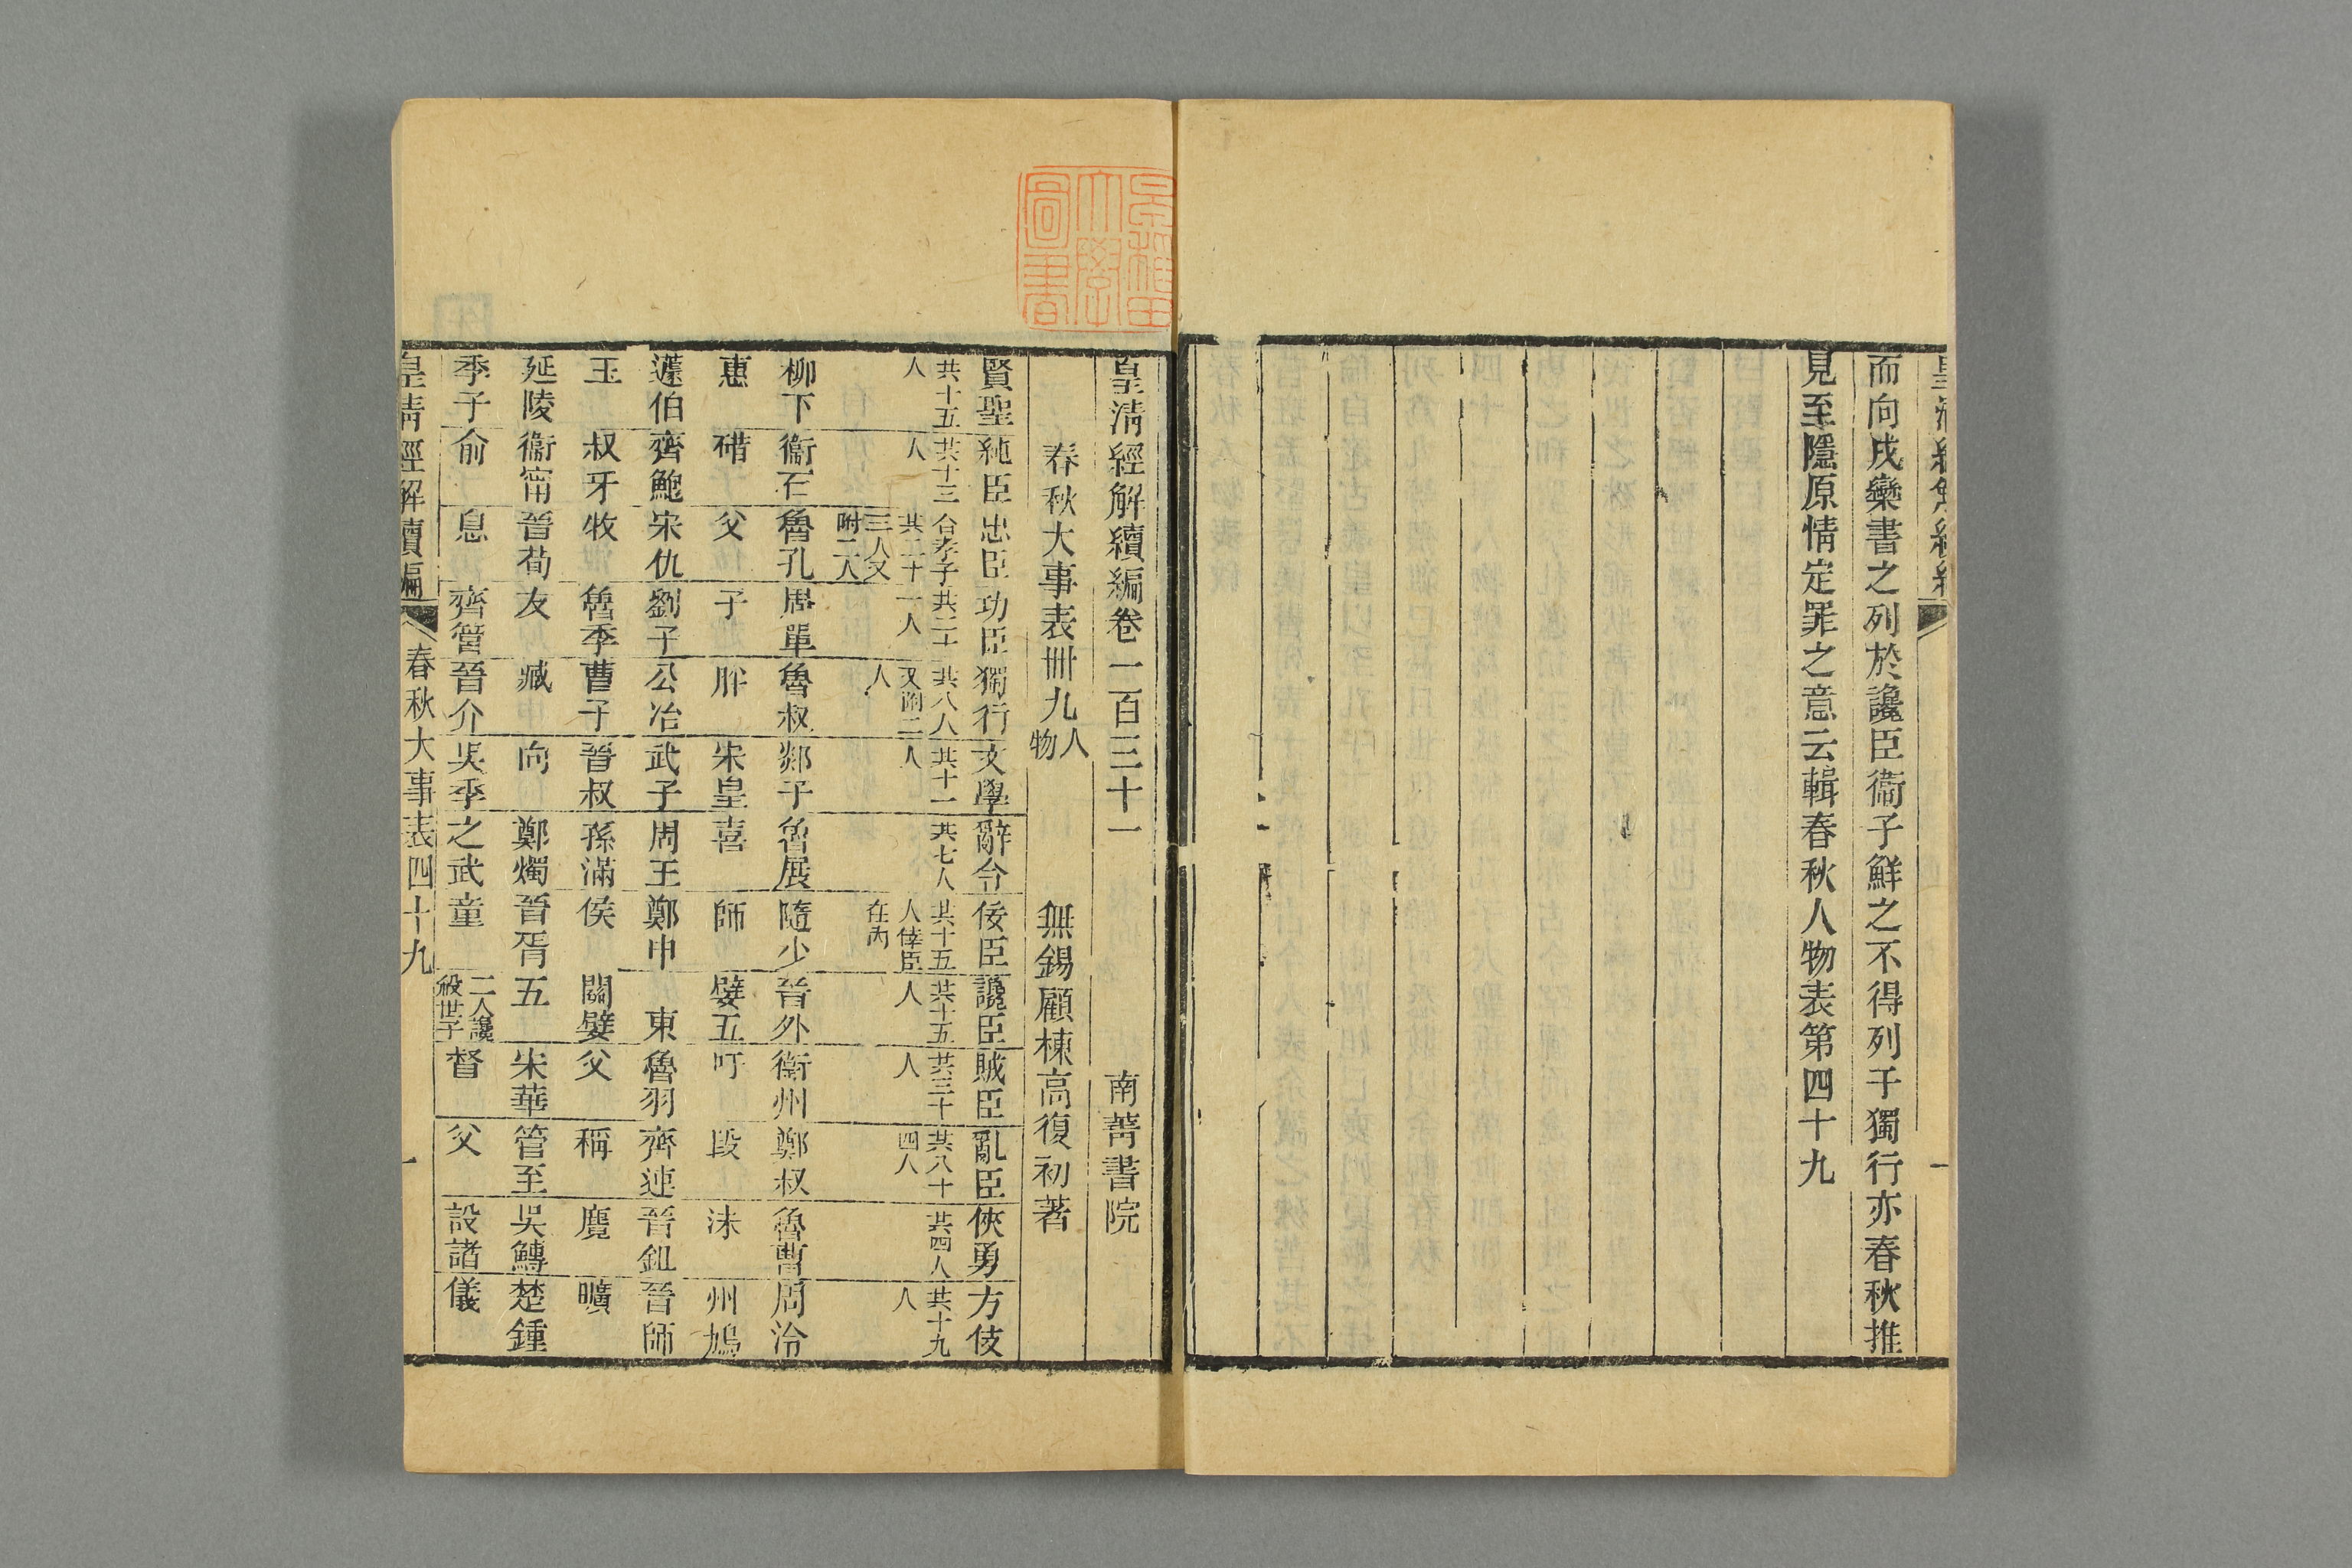 而向戌欒書之列於讒臣衞子鮮之不得列于獨行亦春秋推
見至隱原情定罪之意云輯春秋人物表第四十九
皇清經解續編卷一百三十一
南菁書院
春秋大事表卌九人物
無錫顧棟高復初著
賢聖
共十五人
柳下惠
蘧伯玉
延陵季子
純臣
共十三人
衞石碏
齊鮑叔牙
衞甯俞
忠臣
合孝子共二十三人又附二人
魯孔父
宋仇牧
晉荀息
功臣
共二十一人
周單子
劉子
魯季友
齊管
獨行
共八人又附二人
魯叔肸
公冶
曹子臧
晉介
文學
共十一人
郯子
宋皇武子
晉叔向
吳季
辭令
共七人
魯展喜
周王孫滿
鄭燭之武
佞臣
共十五人倖臣在內
隨少師
鄭申侯
晉胥童
讒臣
共十五人
晉外嬖五
東關嬖五
二人讒殺世子
賊臣
共三十人
衞州吁
魯羽父
宋華督
亂臣
共八十四人
鄭叔段
齊連稱
管至父
俠勇
共四人
魯曹沫
晉鉏麑
吳鱄設諸
方伎
共十九人
周泠州鳩
晉師曠
楚鍾儀
皇清經解續編
春秋大事表四十九
一